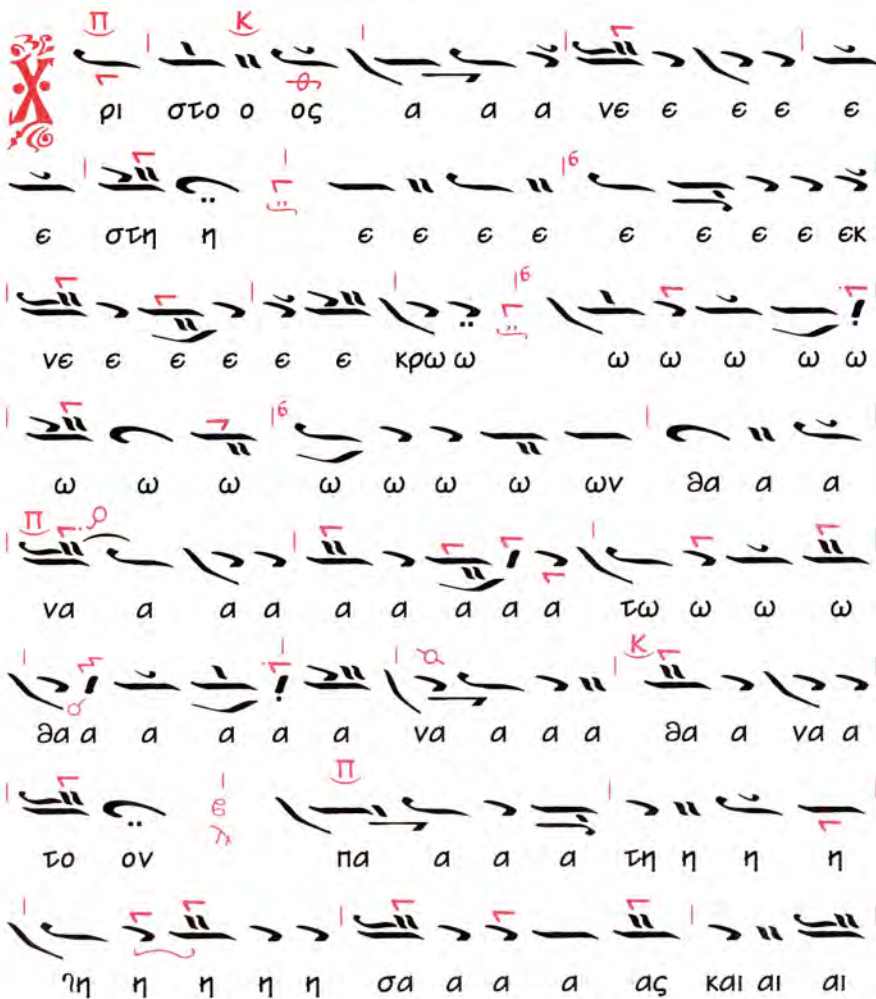 Χ ρι στο ο ος α α α νε ε ε ε ε
ε στη η ε ε ε ε ε ε ε ε εκ
νε ε ε ε ε ε κρω ω ω ω ω ω ω
ω ω ω ω ω ω ω ων θα α α
να α α α α α α α α τω ω ω ω
θα α α α α α να α α α θα α να α
το ον πα α α α τη η η η
γη η η η η σα α α α ας και αι αι